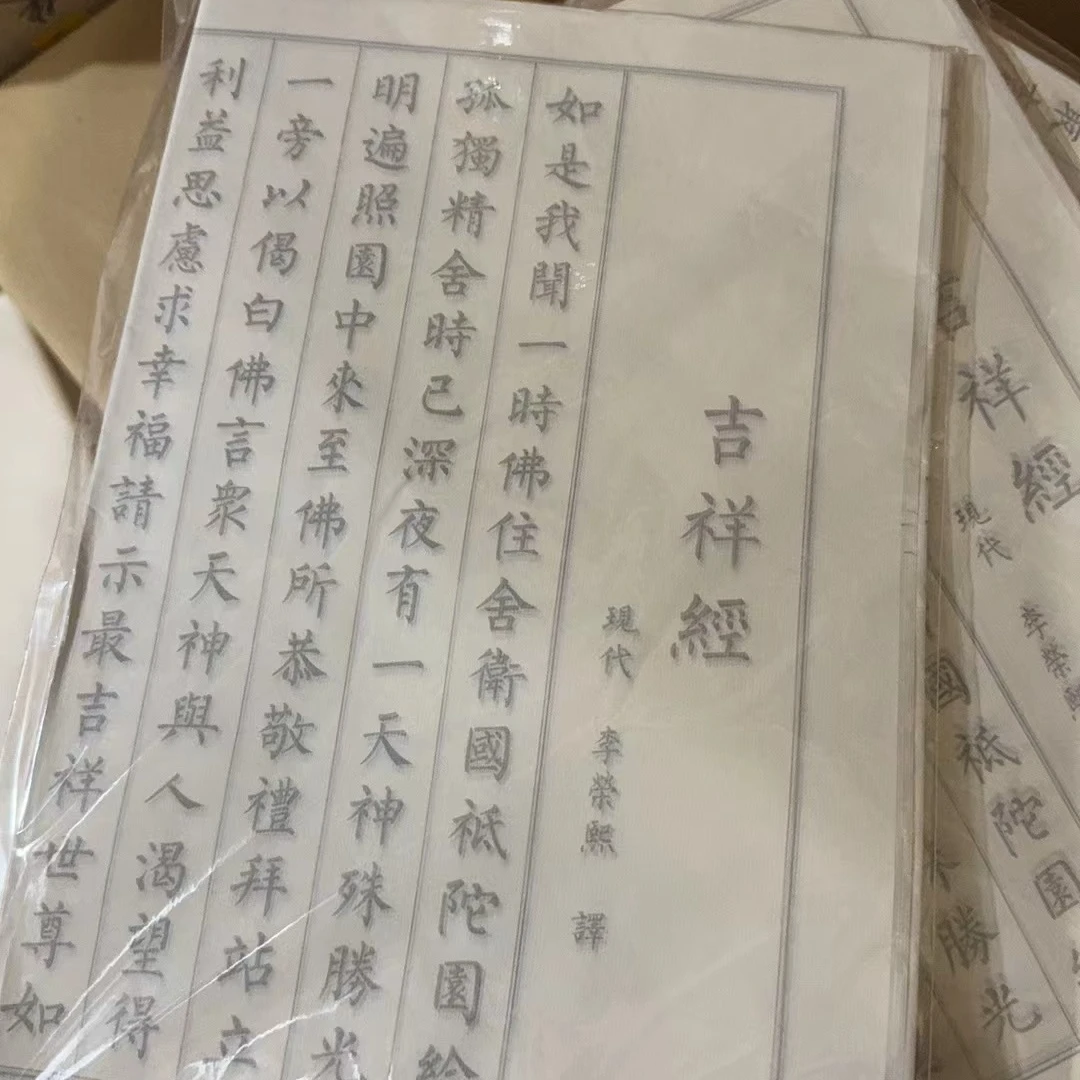 吉祥經
現代 李榮熙 譯
如是我聞一時佛住舍衛國祇陀園給
孤獨精舍時已深夜有一天神殊勝光
明遍照園中來至佛所恭敬禮拜站立
一旁以偈白佛言衆天神與人渴望得
利益思慮求幸福請示最吉祥世尊如
吉祥經
現代 李榮熙
國祇陀園
勝光